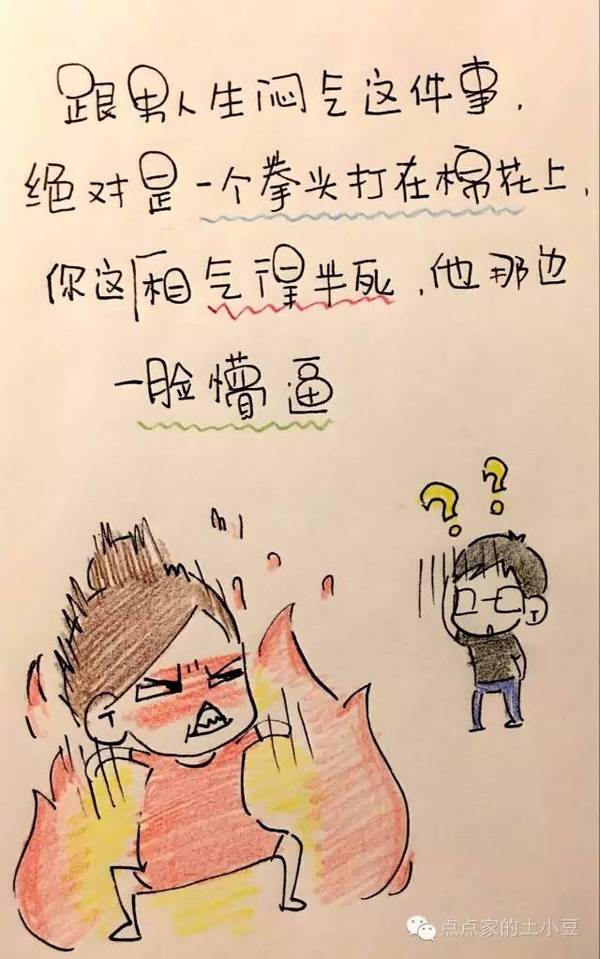 跟男人生闷气这件事，
绝对是一个拳头打在棉花上，
你这厢气得半死，他那边
一脸懵逼
??
点点家的土小豆